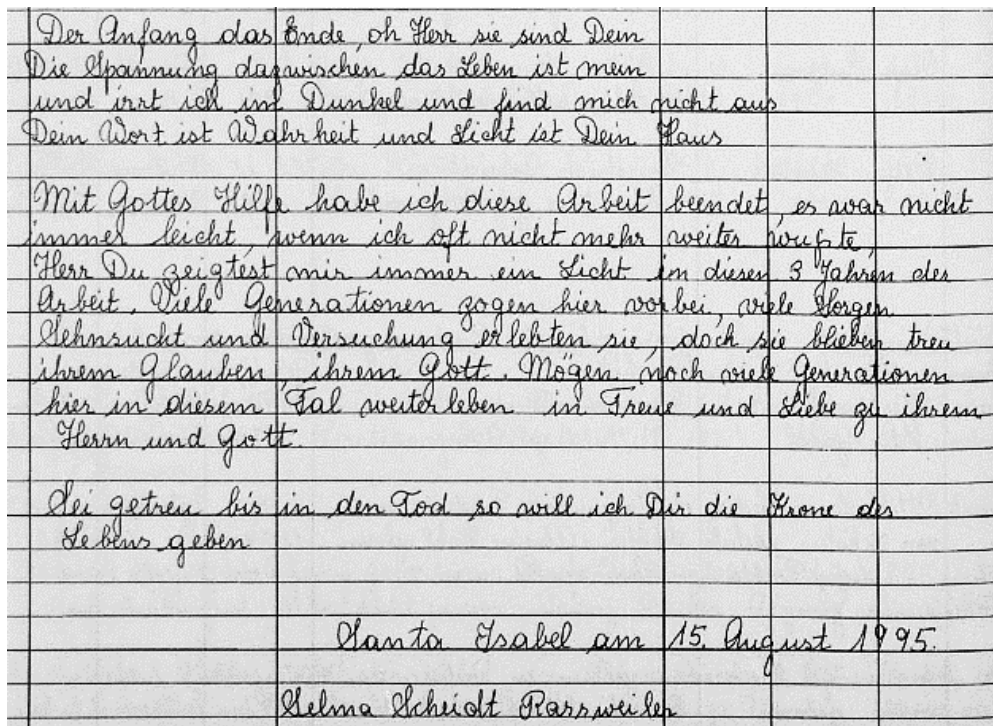 Der Anfang das Ende, oh Herr sie sind Dein
Die Spannung dazwischen das Leben ist mein
und irrt ich im Dunkel und find mich nicht aus
Dein Wort ist Wahrheit und Licht ist Dein Haus
Mit Gottes Hilfe habe ich diese Arbeit beendet, es war nicht
immer leicht, wenn ich oft nicht mehr weiter wußte,
Herr Du zeigtest mir immer ein Licht in diesen 3 Jahren der
Arbeit. Viele Generationen zogen hier vorbei, viele Sorgen
Sehnsucht und Versuchung erlebten sie, doch sie blieben treu
ihrem Glauben, ihrem Gott. Mögen noch viele Generationen
hier in diesem Tal weiterleben in Treue und Liebe zu ihrem
Herrn und Gott.
Sei getreu bis in den Tod so will ich Dir die Krone des
Lebens geben
Santa Isabel am 15. August 1995.
Selma Scheidt Rassweiler